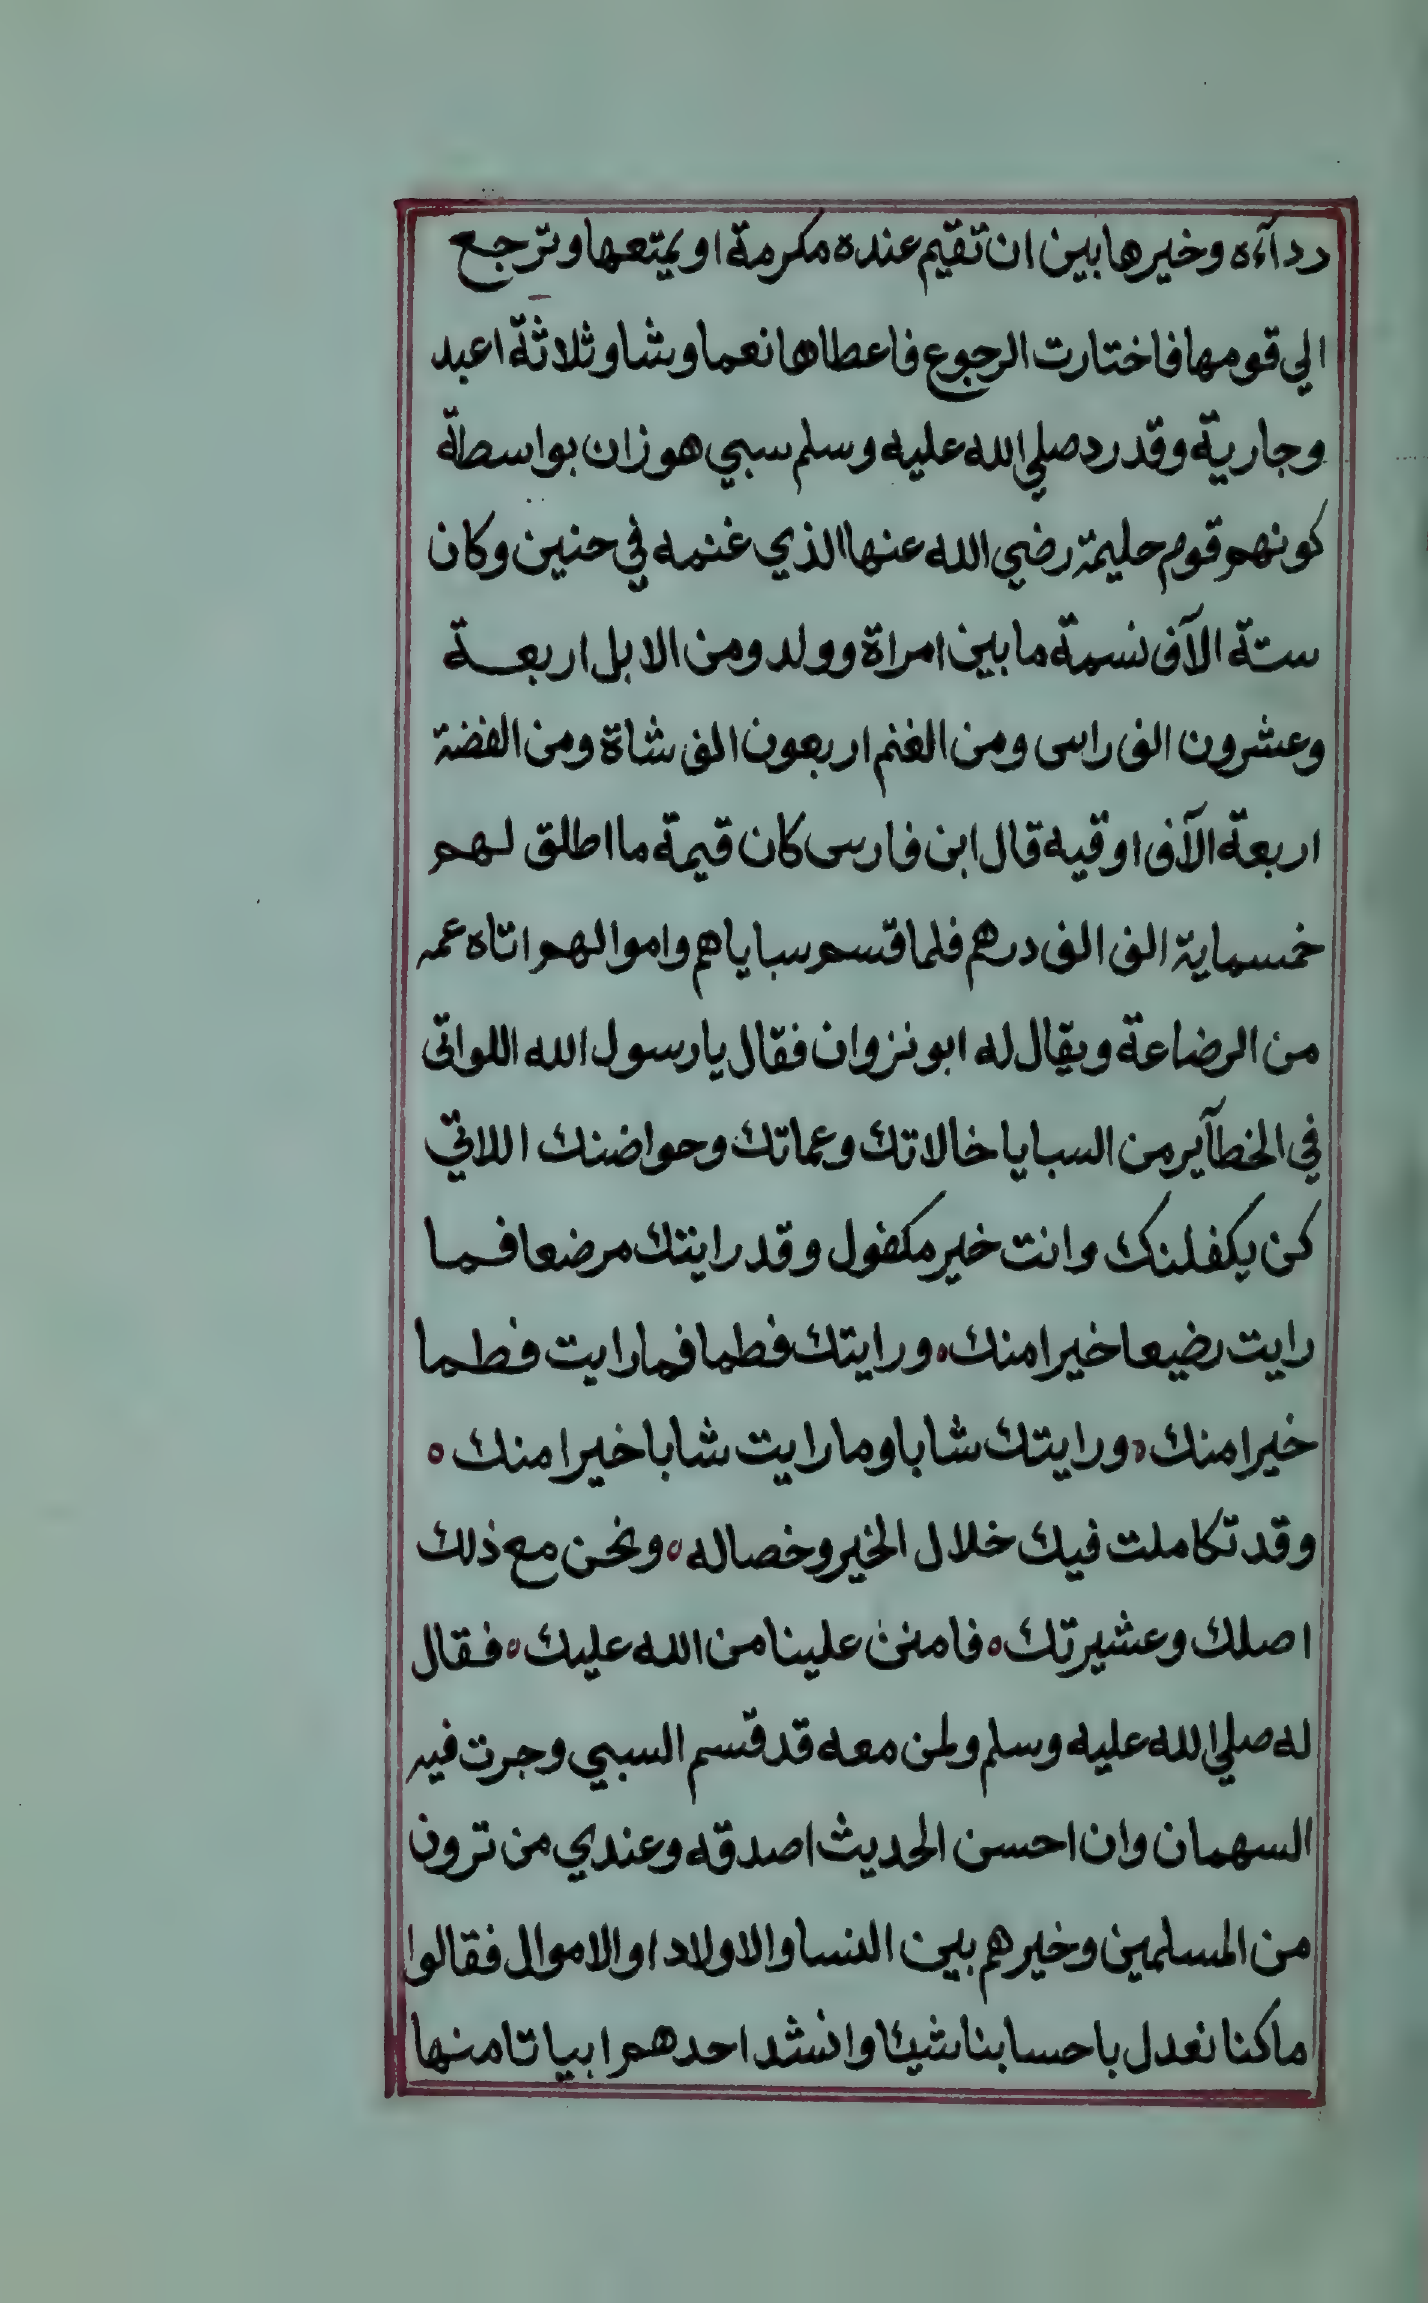 ردآءه وخيرها بين ان تقيم عنده مكرمة او يمتعها وترجع
الي قومها فاختارت الرجوع فاعطاها نعما وشا وثلاثة اعبد
وجارية وقد رد صلي الله عليه وسلم سبي هوزان بواسطة
كونهم قوم حليمة رضي الله عنها الذي غنمه في حنين وكان
ستة الآف نسمة ما بين امراة وولد ومن الابل اربعة
وعشرون الف راس ومن الغنم اربعون الف شاة ومن الفضة
اربعة الآف اوقيه قال ابن فارس كان قيمة ما اطلق لهم
خمسماية الف الف درهم فلما قسم سباياهم واموالهم اتاه عمه
من الرضاعة ويقال له ابو نزوان فقال يا رسول الله اللواتي
في الخطآير من السبايا خالاتك وعماتك وحواضنك اللاتي
كن يكفلنك وانت خير مكفول وقد رايتك مرضعا فما
رايت رضيعا خيرا منك ورايتك فطما فما رايت فطما
خيرا منك ورايتك شابا وما رايت شابا خيرا منك
وقد تكاملت فيك خلال الخير وخصاله ونحن مع ذلك
اصلك وعشيرتك فامنن علينا من الله عليك فقال
له صلي الله عليه وسلم ولمن معه قد قسم السبي وجرت فيه
السهمان وان احسن الحديث اصدقه وعندي من ترون
من المسلمين وخيرهم بين النسا والاولاد او الاموال فقالوا
ما كنا نعدل باحسابنا شيئا وانشد احدهم ابياتا منها